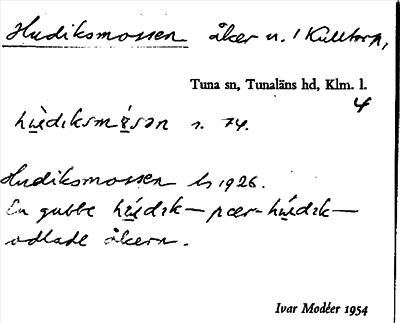 Hudiksmossen åker n. / Kulltorp,
Tuna sn, Tunaläns hd, Klm. l.
4
s. 74.
Hudiksmossen ls 1926.
En gubbe
odlade åkern.
Ivar Modéer 1954